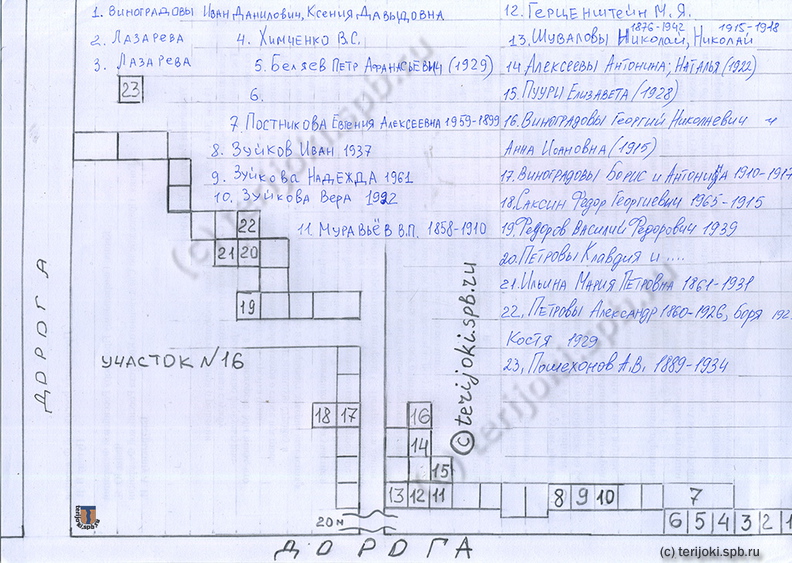 1. Виноградовы Иван Данилович, Ксения Давыдовна
2. Лазарева
4. Химченко В.С.
3. Лазарева
5. Беляев Петр Афанасьевич (1929)
6.
7. Постникова Евгения Алексеевна 1959-1899
8. Зуйков Иван 1937
9. Зуйкова Надежда 1961
10. Зуйкова Вера 1992
11. Муравьёв В.П. 1858-1910
12. Герценштейн М.Я.
1876-1942 1915-1918
13. Шуваловы Николай, Николай
14 Алексеевы Антонина; Наталья (1922)
15. Пуури Елизавета (1928)
16. Виноградовы Георгий Николаевич и
Анна Иоановна (1915)
17. Виноградовы Борис и Антонида 1910-1917
18. Саксин Федор Георгиевич 1965-1915
19. Федоров Василий Федорович 1939
20. Петровы Клавдия и ....
21. Ильина Мария Петровна 1861-1931
22. Петровы Александр 1860-1926, Боря 192
Костя 1929
23. Пошехонов А.В. 1889-1934
23
22
21 20
19
ДОРОГА
УЧАСТОК №16
18 17
16
14
15
13 12 11
8 9 10
7
6 5 4 3 2 1
20 м
ДОРОГА
(c) terijoki.spb.ru
© terijoki.spb.ru
(c) terijoki.spb.ru
terijoki.spb.ru
(c) terijoki.spb.ru